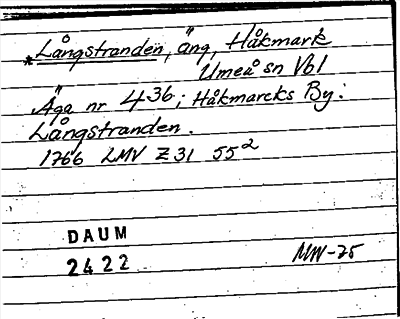 *Långstranden, äng, Håkmark
Umeå sn Vbl
Äga nr 436; Håkmarcks By:
Långstranden.
1766 LMV Z31 55²
DAUM
2422
MW-75